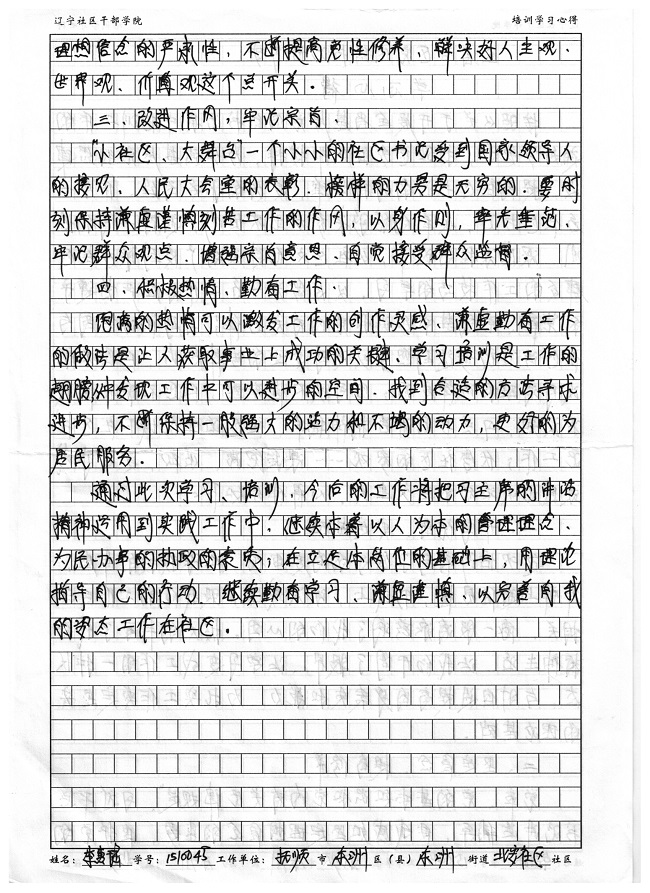 辽宁社区干部学院 培训学习心得
理想信念的严肃性，不断提高党性修养，解决好人生观、
世界观、价值观这个总开关。
三、改进作风，牢记宗旨。
"小社区、大舞台"一个小小的社区书记受到国家领导人
的接见、人民大会堂的表彰，榜样的力量是无穷的，要时
刻保持谦虚谨慎刻苦工作的作风，以身作则，率先垂范、
牢记群众观点、增强宗旨意思、自觉接受群众监督。
四、积极热情、勤奋工作。
饱满的热情可以激发工作的创作灵感、谦虚勤奋工作
的做法是让人获取事业上成功的关键。学习培训是工作的
翅膀，发现工作中可以进步的空间，找到合适的方法寻求
进步，不断保持一股强大的活力和不竭的动力，更好的为
居民服务。
通过此次学习、培训，今后的工作将把习主席的讲话
精神运用到实践工作中，继续本着以人为本的管理理念、
为民办事的执政的；在立足本岗位的基础上，用理论
指导自己的行动，继续勤奋学习、谦虚谨慎、以完善自我
的姿态工作在社区。
姓名： 学号：1510045 工作单位：抚顺 市 东洲 区（县）东洲 街道 社区